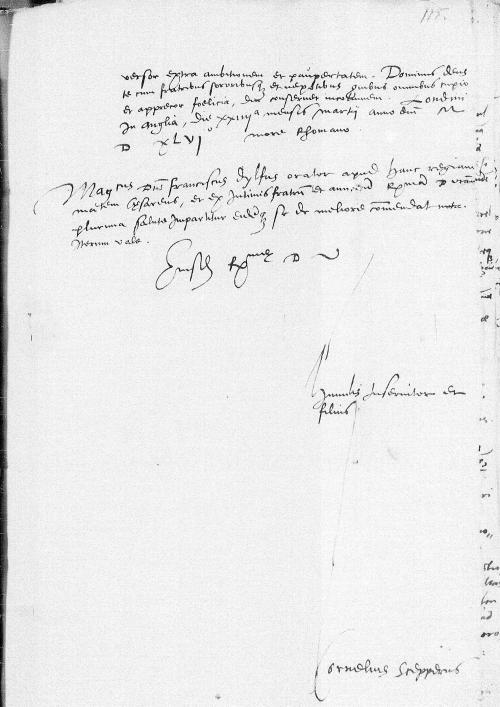 115.
versor extra ambitionem et paupertatem. Dominus deus
te cum fratribus sororibusque et nepotibus quibus omnibus cupio
et apprecor foelicia, diu conservet incolumem. Londini
In Anglia, die XXIIIIa mensis Martii anno dni M
D XLVIo more Rhomano
Magcus Dns franciscus Dylfus orator apud hanc regiam
matem Caesareus, et ex Intimis fratrum et amicorum Rme D vrae
plurima salute Impartitur eidemque se de meliore commendat nota.
Iterum vale.
Eiusdem Rme D V
humilis Inservitor et
filius
Cornelius Scepperus